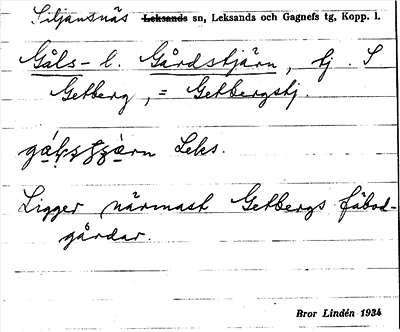 Siljansnäs Leksands sn, Leksands och Gagnefs tg, Kopp. l.
Gåls- l. Gårdstjärn, tj. S
Getberg, = Getbergstj.
Leks.
Ligger närmast Getbergs fäbod-
gårdar.
Bror Lindén 1934